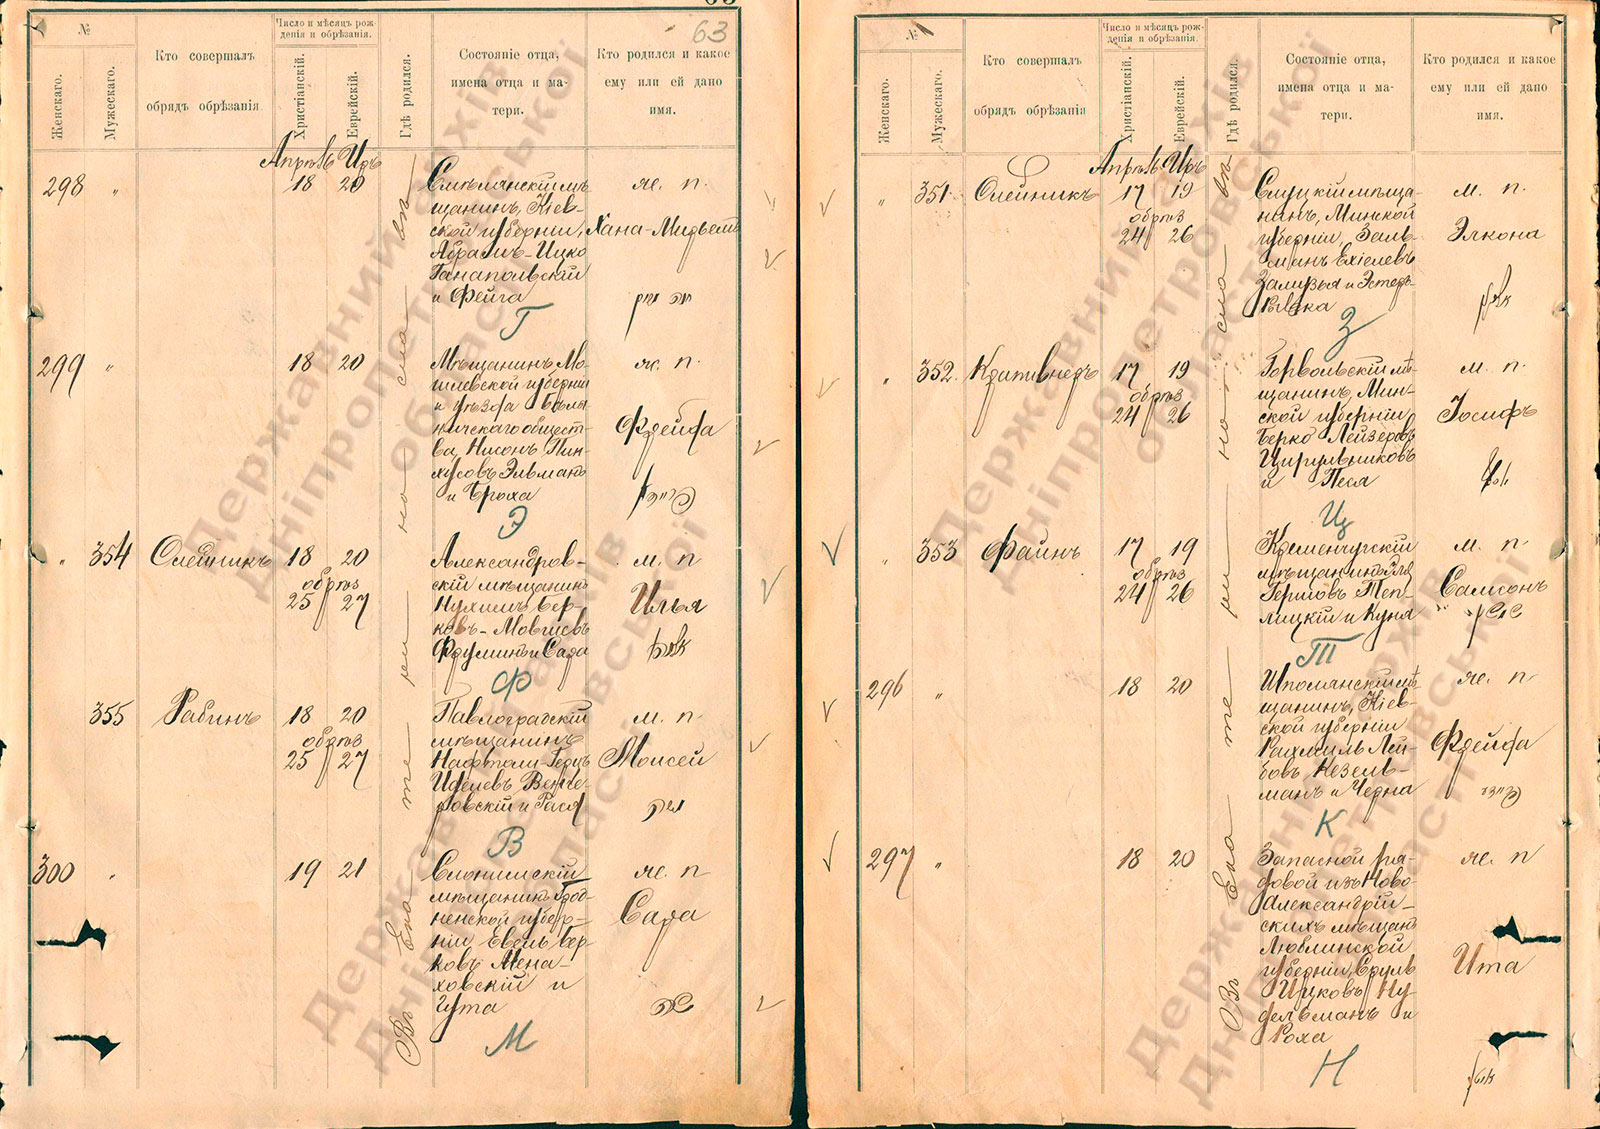 63
№
Женскаго.
Мужескаго.
Кто совершалъ
обрядъ обрѣзанія.
Число и мѣсяцъ рож-
денія и обрѣзанія.
Христіанскій.
Еврейскій.
Гдѣ родился.
Состояніе отца,
имена отца и ма-
тери.
Кто родился и какое
ему или ей дано
имя.
Апрѣль Иръ
298 " 18 20
Смѣлянскій мѣ-
щанинъ, Кіев-
ской губерніи,
Абрамъ-Ицко
Ганапольскій
и Фейга
Г
ж. п.
Хана-Мирьемъ
299 " 18 20
Мѣщанинъ Мо-
гилевской губерніи
и уѣзда
ничскаго общест-
ва, Нисонъ Пин-
хусовъ Эльманъ
и Броха
Э
ж. п.
Фрейфа
" 354 Олейникъ 18 20
обрѣз
25 27
Александров-
скій мѣщанинъ
Нухимъ Бер-
ковъ-Мовшевъ
Фруминъ и Сара
Ф
м. п
Илья
355 Рабинъ 18 20
обрѣз
25 27
Павлоградскій
мѣщанинъ
Нафтоли-Герцъ
Иделевъ Венге-
ровскій и Рася
В
м. п
Моисей
300 " 19 21
Слонимскій
мѣщанинъ Грод-
ненской губер-
ніи Евель Бер-
ковъ Мена-
ховскій и
Гута
М
ж. п
Сара
Въ Ека-те-ри-но-сла-вѣ
№
Женскаго.
Мужескаго.
Кто совершалъ
обрядъ обрѣзанія
Число и мѣсяцъ рож-
денія и обрѣзанія.
Христіанскій.
Еврейскій.
Гдѣ родился.
Состояніе отца,
имена отца и ма-
тери.
Кто родился и какое
ему или ей дано
имя.
Апрѣль Иръ
" 351 Олейникъ 17 19
обрѣз
24 26
Слуцкій мѣща-
нинъ, Минской
губерніи, Заль-
манъ Ехіелевъ
и Эстеръ-
Рывка
З
м. п.
Элкона
" 352. 17 19
обрѣз
24 26
Горвольскій мѣ-
щанинъ, Мин-
ской губерніи
Берко Лейзеровъ
Цирульниковъ
и Песя
Ц
м. п.
Іосифъ
" 353 Файнъ 17 19
обрѣз
24 26
Кременчугскій
мѣщанинъ Эля
Гершовъ Теп-
лицкій и Куня
Т
м. п
Самсонъ
296 " 18 20
Шполянскій мѣ-
щанинъ, Кіев-
ской губерніи
Рахмиль Лей-
бовъ Кезель-
манъ и Черна
К
ж. п.
Фрейфа
297 " 18 20
Запасной ря-
довой изъ Ново-
Александрій-
скихъ мѣщанъ
Люблинской
губерніи, Сруль
Ицковъ Ну-
дельманъ и
Роха
Н
ж. п
Ита
Въ Ека-те-ри-но-сла-вѣ
Державний архів
Дніпропетровської
області